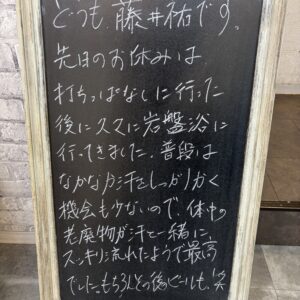 どうも、藤井祐です。
先日のお休みは
打ちっぱなしに行った
後に久々に岩盤浴に
行ってきました。普段は
なかなか汗をしっかりかく
機会も少ないので、体中の
老廃物が汗と一緒に、
スッキリ流れたようで最高
でした。もちろんその後のビールも。笑